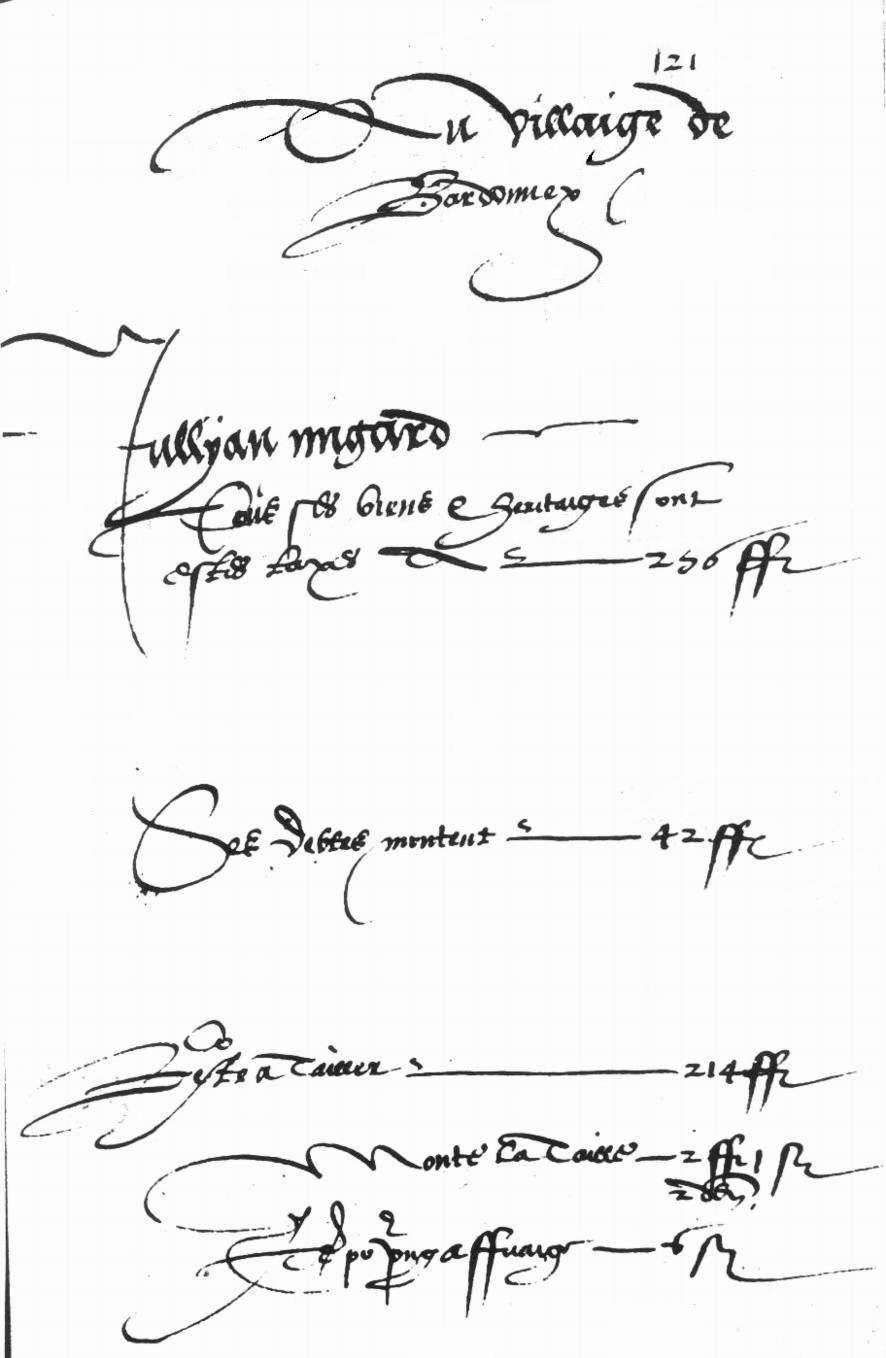 121
Du villaige de
Bardonnex
Jullyan migard
Tous ses biens e heritaiges sont
estes taxes A 256 ffr
Ses debtes montent 42 ffr
Reste a tailler 214 ffr
Monte la Taille 2 ffr 1 s
2 den.
Et po ung affuaige 6 s